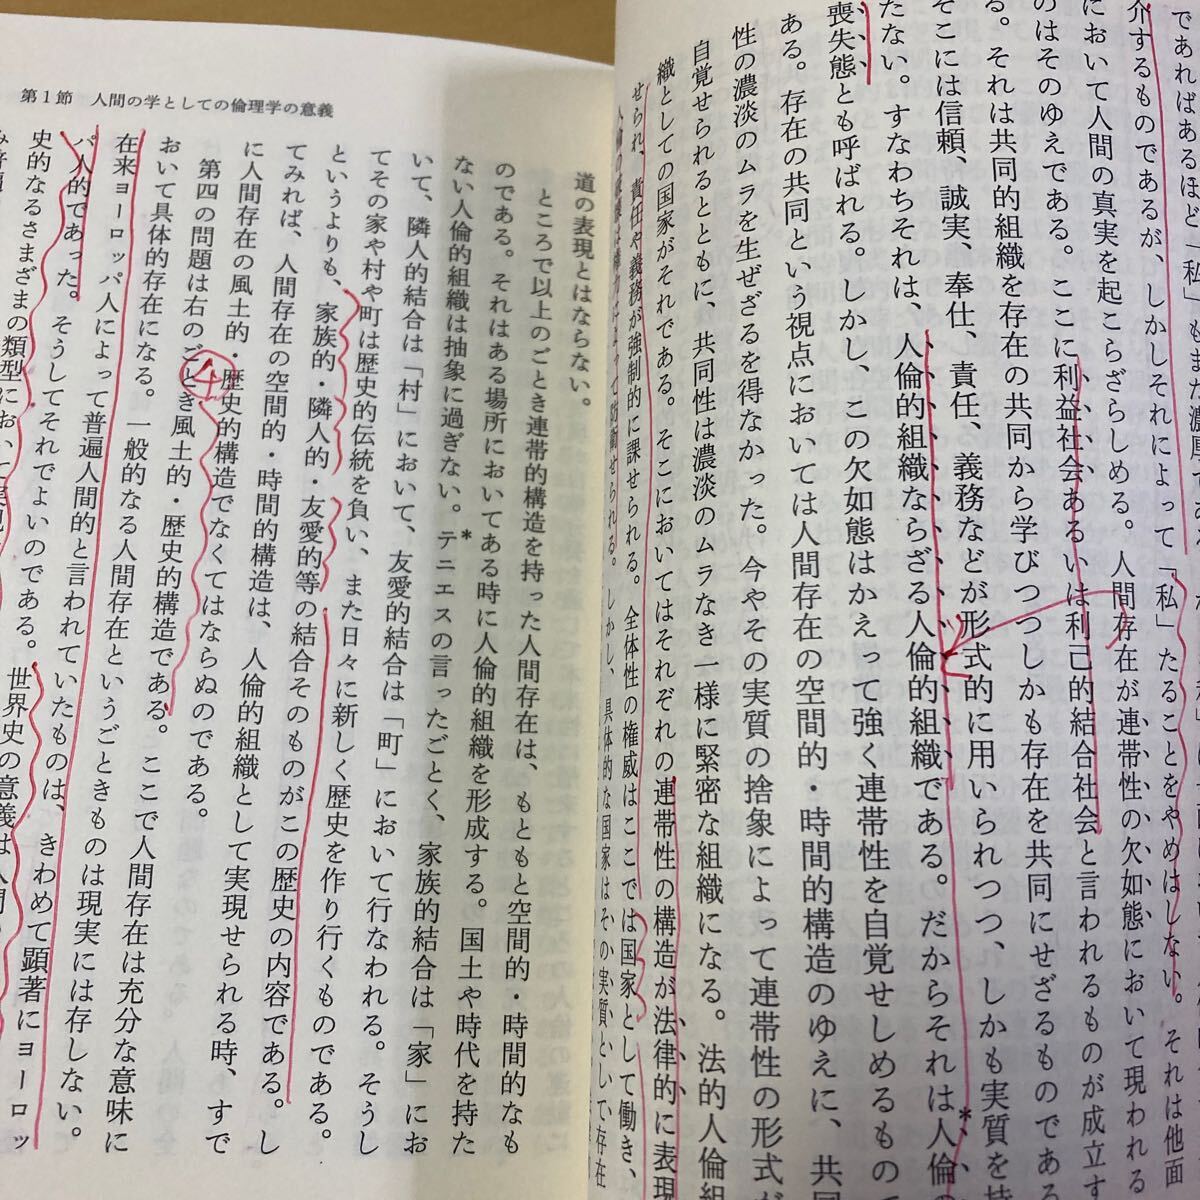 であればあるほど「私」もまた濃厚である
介するものであるが、しかしそれによって「私」たることをやめはしない。それは他面
において人間の真実を起こらざらしめる。人間存在が連帯性の欠如態において現われる
のはそのゆえである。ここに利益社会あるいは利己的結合社会と言われるものが成立す
る。それは共同的組織を存在の共同から学びつつしかも存在を共同にせざるものである
そこには信頼、誠実、奉仕、責任、義務などが形式的に用いられつつ、しかも実質を持
たない。すなわちそれは、人倫的組織ならざる人倫的組織である。だからそれは人倫の
喪失態とも呼ばれる。しかし、この欠如態はかえって強く連帯性を自覚せしめるもので
ある。存在の共同という視点においては人間存在の空間的・時間的構造のゆえに、共同
性の濃淡のムラを生ぜざるを得なかった。今やその実質の捨象によって連帯性の形式が
自覚せられるとともに、共同性は濃淡のムラなき一様に緊密な組織になる。法的人倫組
織としての国家がそれである。そこにおいてはそれぞれの連帯性の構造が法律的に表現
せられ、責任や義務が強制的に課せられる。全体性の権威はここでは国家として働き、
しかし、具体的な国家はその実質として存在
第1節 人間の学としての倫理学の意義
道の表現とはならない。
ところで以上のごとき連帯的構造を持った人間存在は、もともと空間的・時間的なも
のである。それはある場所においてある時に人倫的組織を形成する。国土や時代を持た
ない人倫的組織は抽象に過ぎない。テニエスの言ったごとく、家族的結合は「家」にお
いて、隣人的結合は「村」において、友愛的結合は「町」において行なわれる。そうし
てその家や村や町は歴史的伝統を負い、また日々に新しく歴史を作り行くものである。
というよりも、家族的・隣人的・友愛的等の結合そのものがこの歴史の内容である。し
てみれば、人間存在の空間的・時間的構造は、人倫的組織として実現せられる時、すで
に人間存在の風土的・歴史的構造でなくてはならぬのである。
第四の問題は右のごとき風土的・歴史的構造である。ここで人間存在は充分な意味に
おいて具体的存在になる。一般的なる人間存在というごときものは現実には存しない。
在来ヨーロッパ人によって普遍人間的と言われていたものは、きわめて顕著にヨーロッ
パ人的であった。そうしてそれでよいのである。世界史の意義は人間
史的なるさまざまの類型において実現